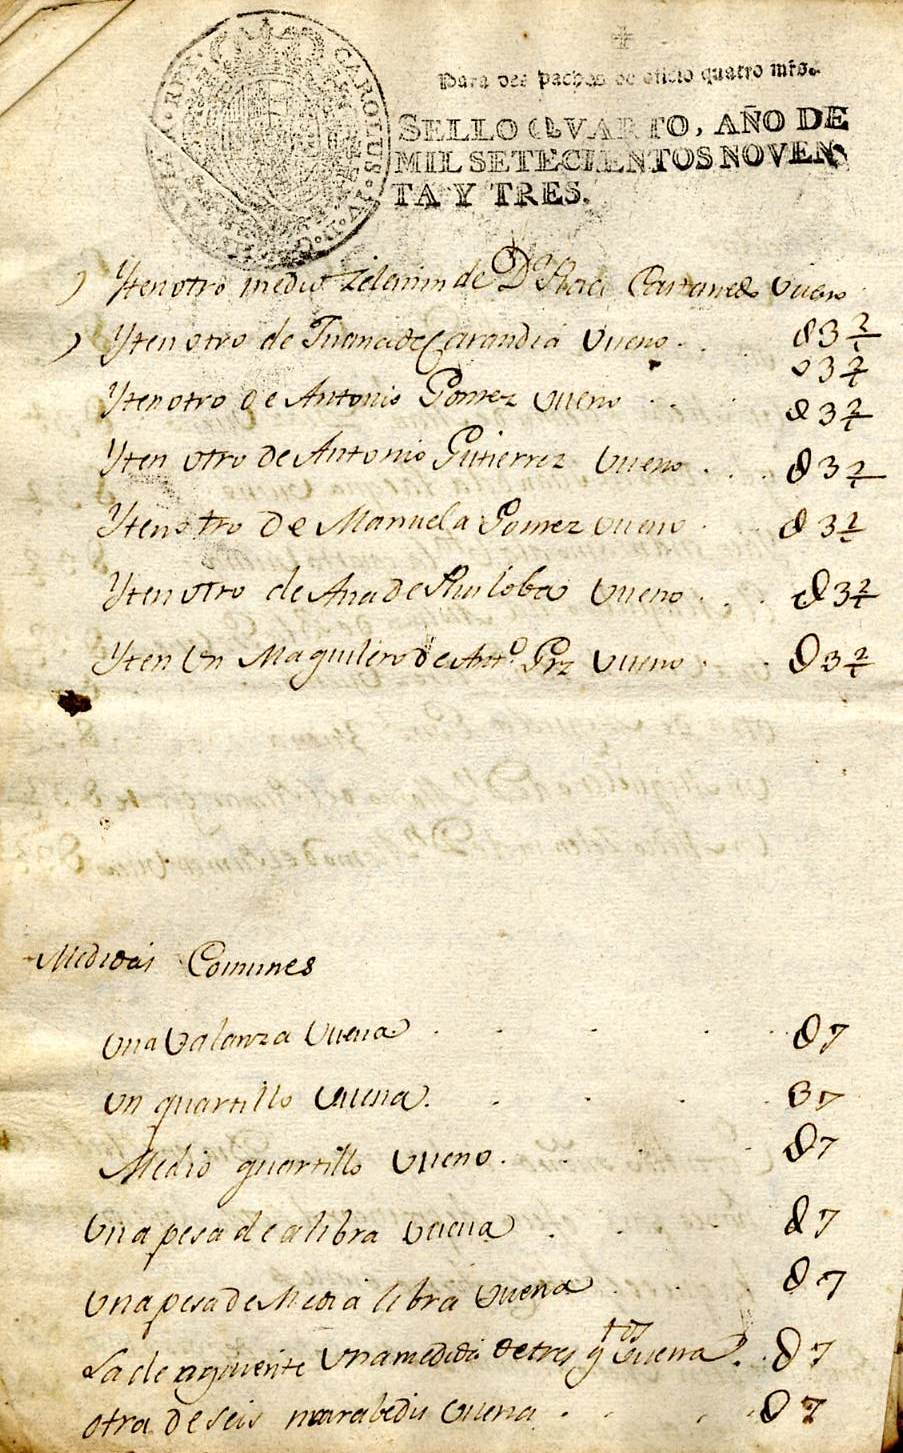 CAROLUS · IV · D · G · HISPANIAR · REX ·
Para despachos de oficio quatro mrs.
SELLO QVARTO, AÑO DE
MIL SETECIENTOS NOVEN
TA Y TRES.
Yten otro medio Zelemin de Dª Castaneda vueno
Yten otro de Juana de Carandia vueno. . . 83 2/4
03 2/4
Yten otro de Antonio Gomez vueno . . . 83 2/4
Yten otro de Antonio Gutierrez vueno . . . 83 2/4
Yten otro de Manuela Gomez vueno . . 83 2/4
Yten otro de Ana de Ruiloba vueno . . . 83 2/4
Yten Un Maquilero de Antº Grz vueno . . 83 2/4
Medidas Comunes
una valanza vuena . . . . . 87
un quartillo vuena . . . . 87
Medio quartillo vueno . . . . 87
una pesa de a libra vuena . . . 87
una pesa de Media libra vuena . . 87
La de aguiente una medida de tres qtos vuena . . 87
otra de seis marabedis vuena . . . . 87